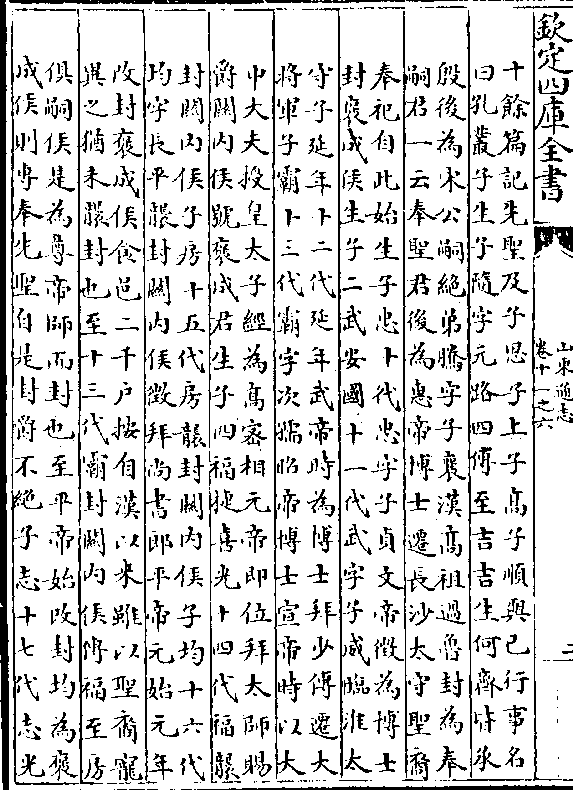 欽定四庫全書
山東通志
卷十一之六
二
十餘篇記先聖及子思子上子髙子順與已行事名
曰孔叢子生子隨字元路四傳至吉吉生何齊皆承
殷後為宋公嗣絶弟騰字子襄漢髙祖過魯封為奉
嗣君一云奉聖君後為惠帝博士遷長沙太守聖裔
奉祀自此始生子忠十代忠字子貞文帝徴為博士
封褒成侯生子二武安國十一代武字子威臨淮太
守子延年十二代延年武帝時為博士拜少傅遷大
將軍子霸十三代霸字次孺昭帝博士宣帝時以大
中大夫授皇太子經為髙密相元帝即位拜太師賜
爵關内侯號褒成君生子四福捷喜光十四代福襲
封關内侯子房十五代房襲封關内侯子均十六代
均字長平襲封關内侯徴拜尚書郎平帝元始元年
改封褒成侯食邑二千户按自漢以來雖以聖裔寵
異之猶未襲封也至十三代霸封關内侯傳福至房
俱嗣侯是為尊帝師而封也至平帝始改封均為褒
成侯則専奉先聖自是封爵不絶子志十七代志光